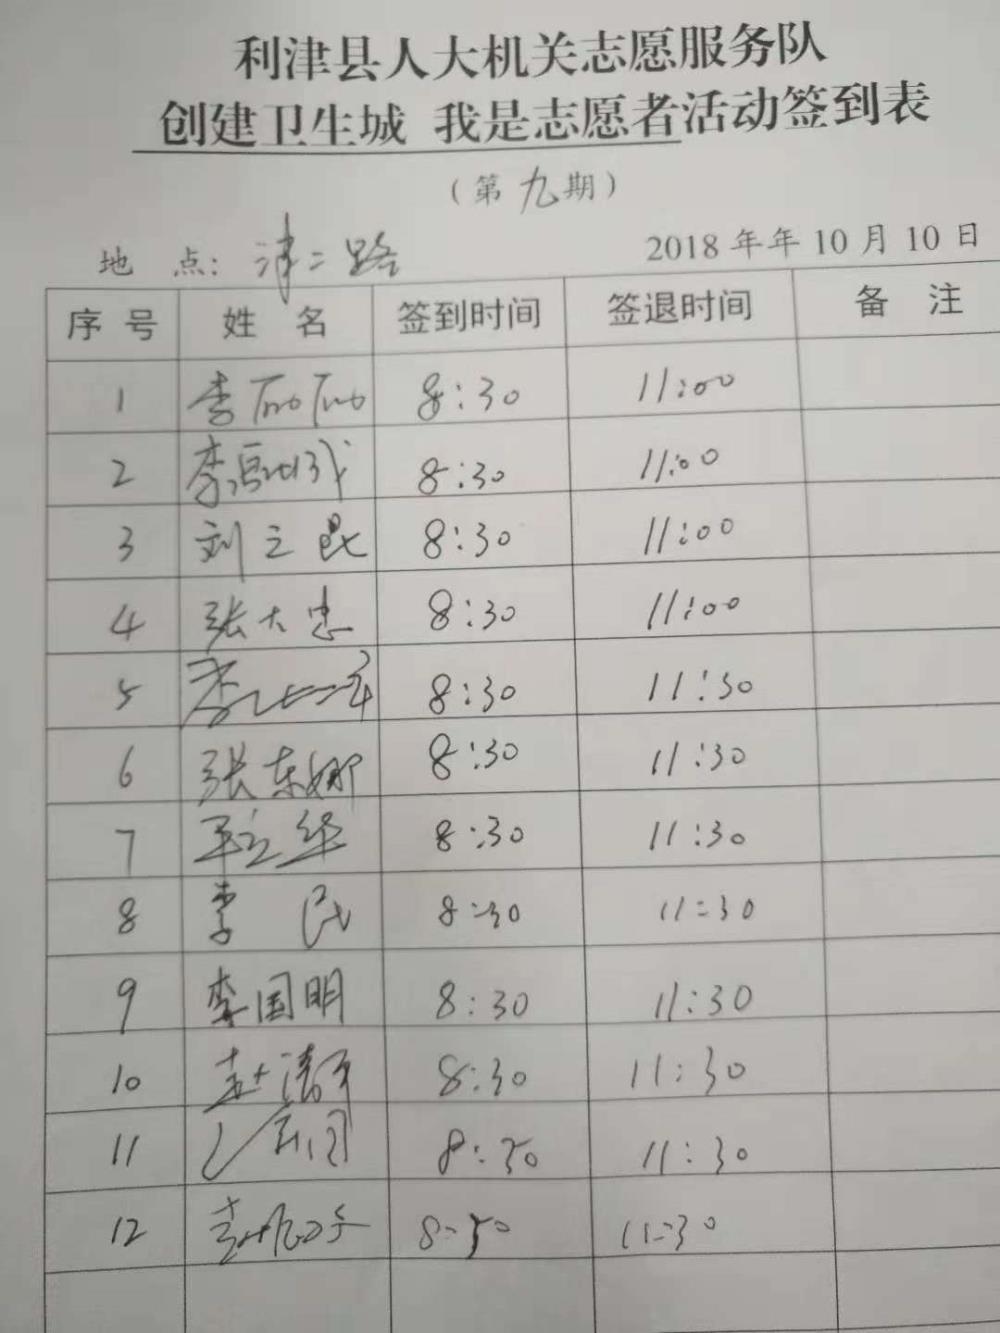 利津县人大机关志愿服务队
创建卫生城 我是志愿者活动签到表
（第九期）
地 点：津二路 2018年年10月10日
序号 姓名 签到时间 签退时间 备注
1 李丽丽 8:30 11:00
2 李 8:30 11:00
3 刘立昆 8:30 11:00
4 张大忠 8:30 11:00
5 李 8:30 11:30
6 张东娜 8:30 11:30
7 王立华 8:30 11:30
8 李民 8:30 11:30
9 李国明 8:30 11:30
10 赵清 8:30 11:30
11 8:30 11:30
12 8:30 11:30